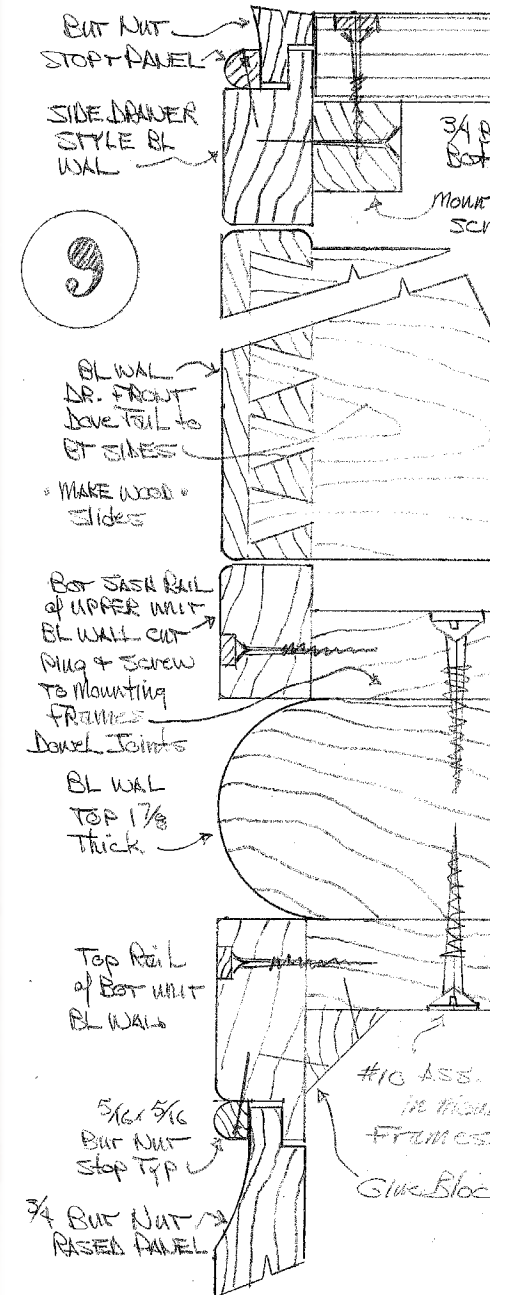 BUT NUT
STOP & PANEL
SIDE DRAWER
STYLE BL
WAL
3/4
BOT
MOUN
SCR
9
BL WAL
DR. FRONT
DOVE TAIL to
BT SIDES
• MAKE WOOD •
Slides
BOT SASH RAIL
of UPPER UNIT
BL WALL CUT
Plug & Screw
To Mounting
FRAMES
Dowel Joints
BL WAL
TOP 1 7/8
Thick
Top Rail
of BOT UNIT
BL WAL.
#10 ASS.
in moun
Frames
5/16 x 5/16
BUT NUT
Stop Typ
Glue Bloc
3/4 BUT NUT
RASED PANEL